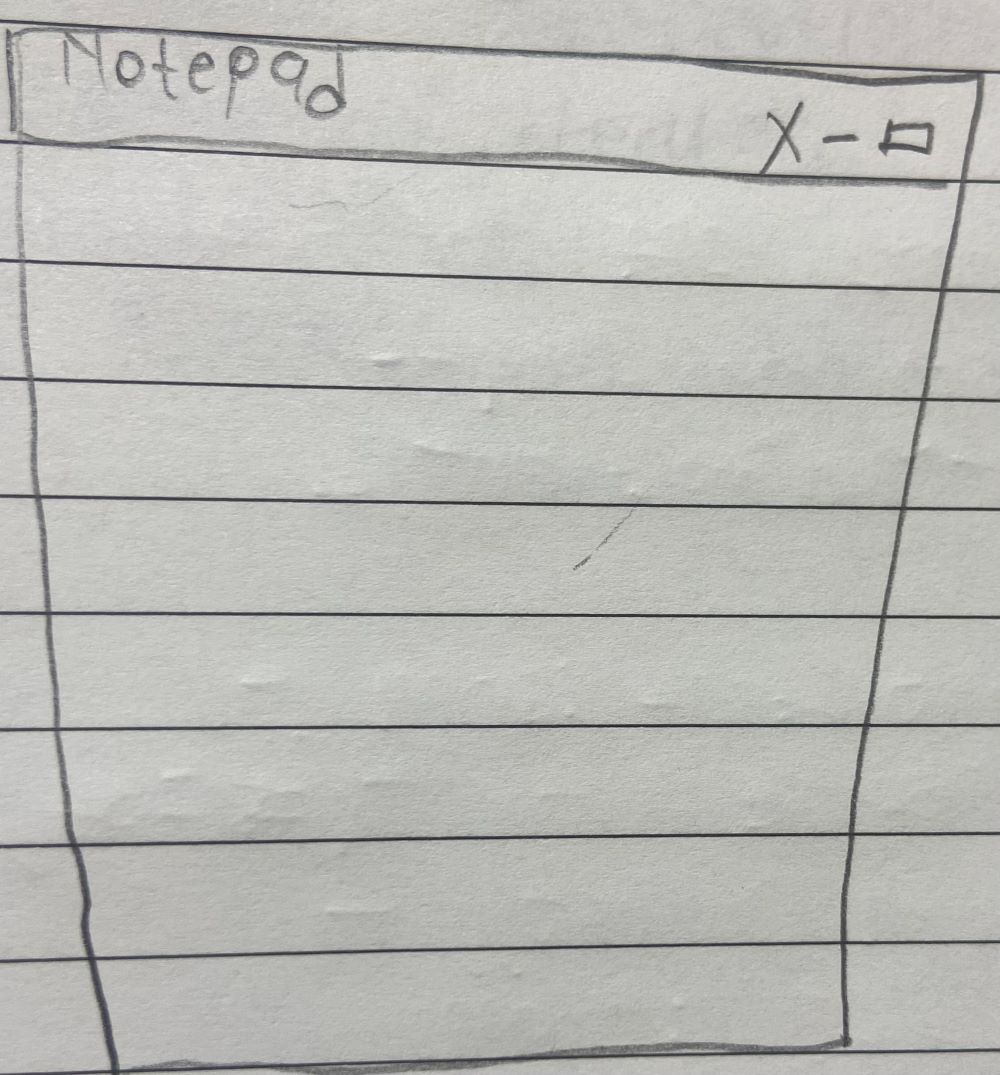 Notepad
X - □